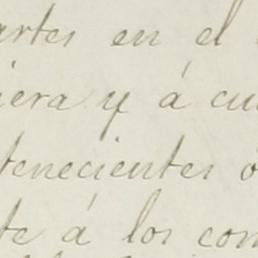 artes en el
iera y á cu
tenecientes ó
te á los con